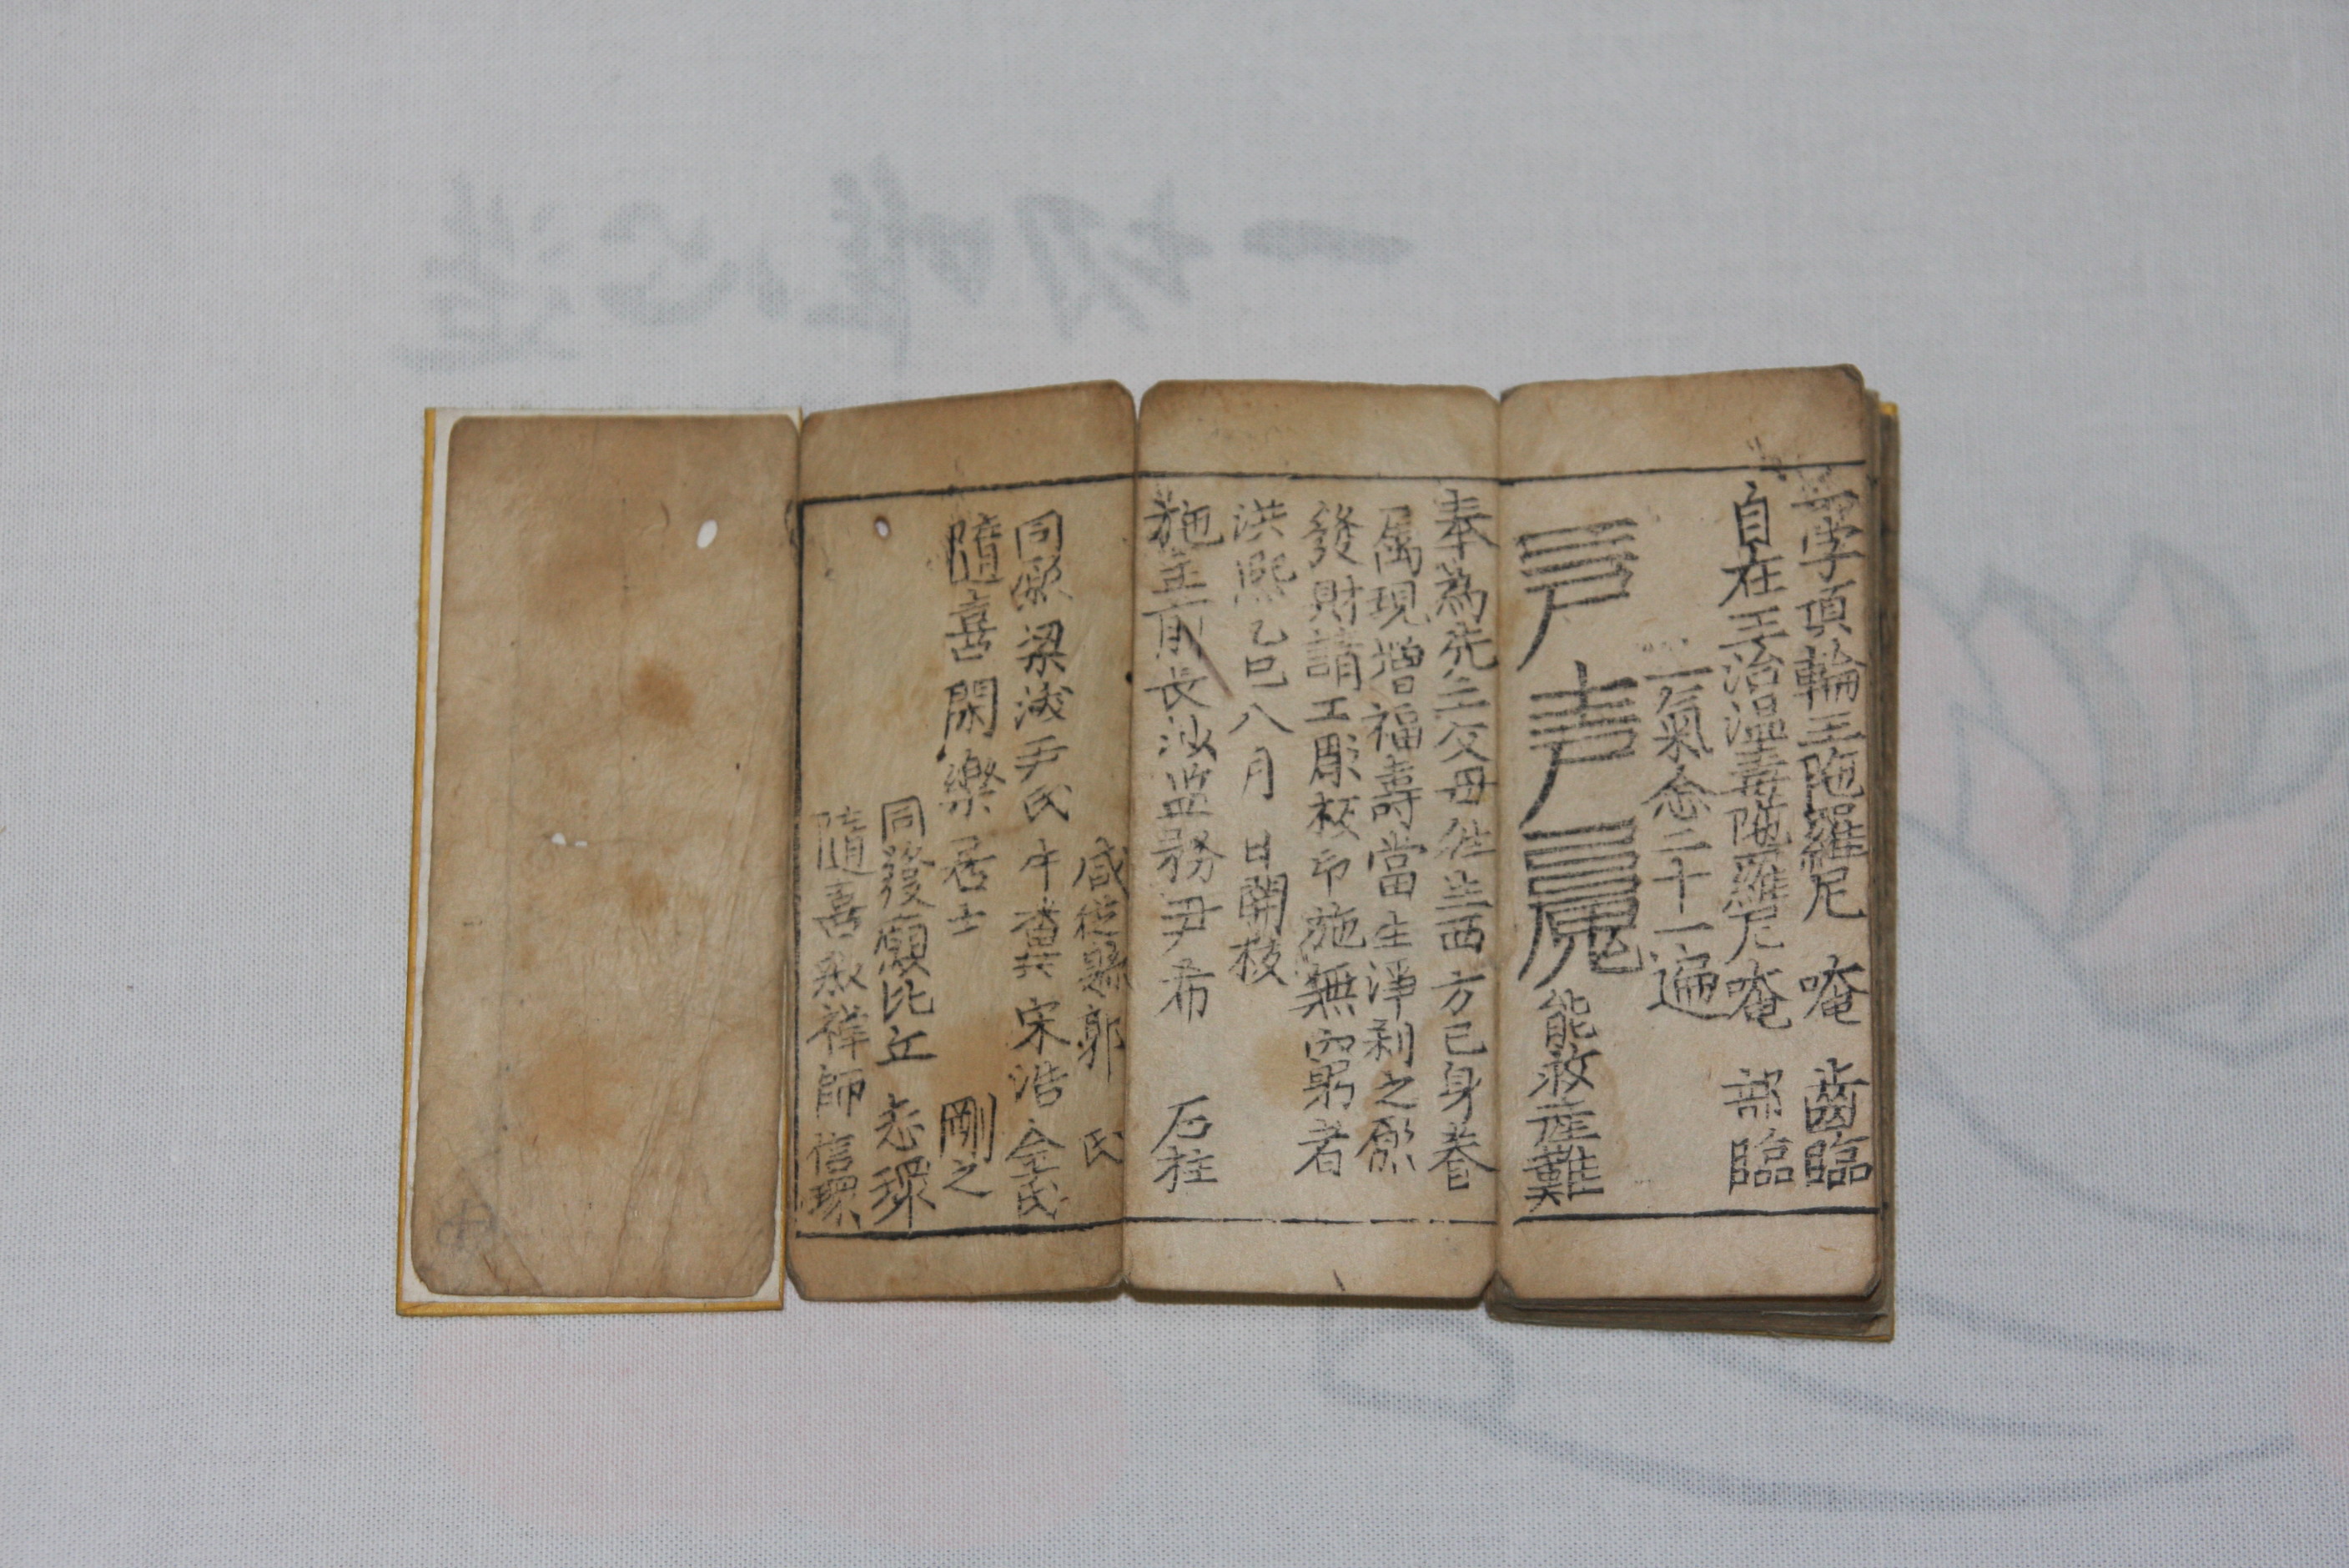 一字頂輪王陁羅尼 唵 齒臨
自在王治溫毒陁羅尼 唵 部臨
一氣念二十一遍
能救産難
奉為先亡父母徃生西方己身眷
属現增福壽當生淨刹之願
發財請工彫板印施無窮者
洪熙乙巳八月 日開板
施主前長沙监務尹希 石柱
咸從縣郭 氏
同願梁 尹氏 宋浩 金氏
隨喜閑樂居士 剛之
同發願比丘 志環
隨喜 禅師 信環
一切唯心造